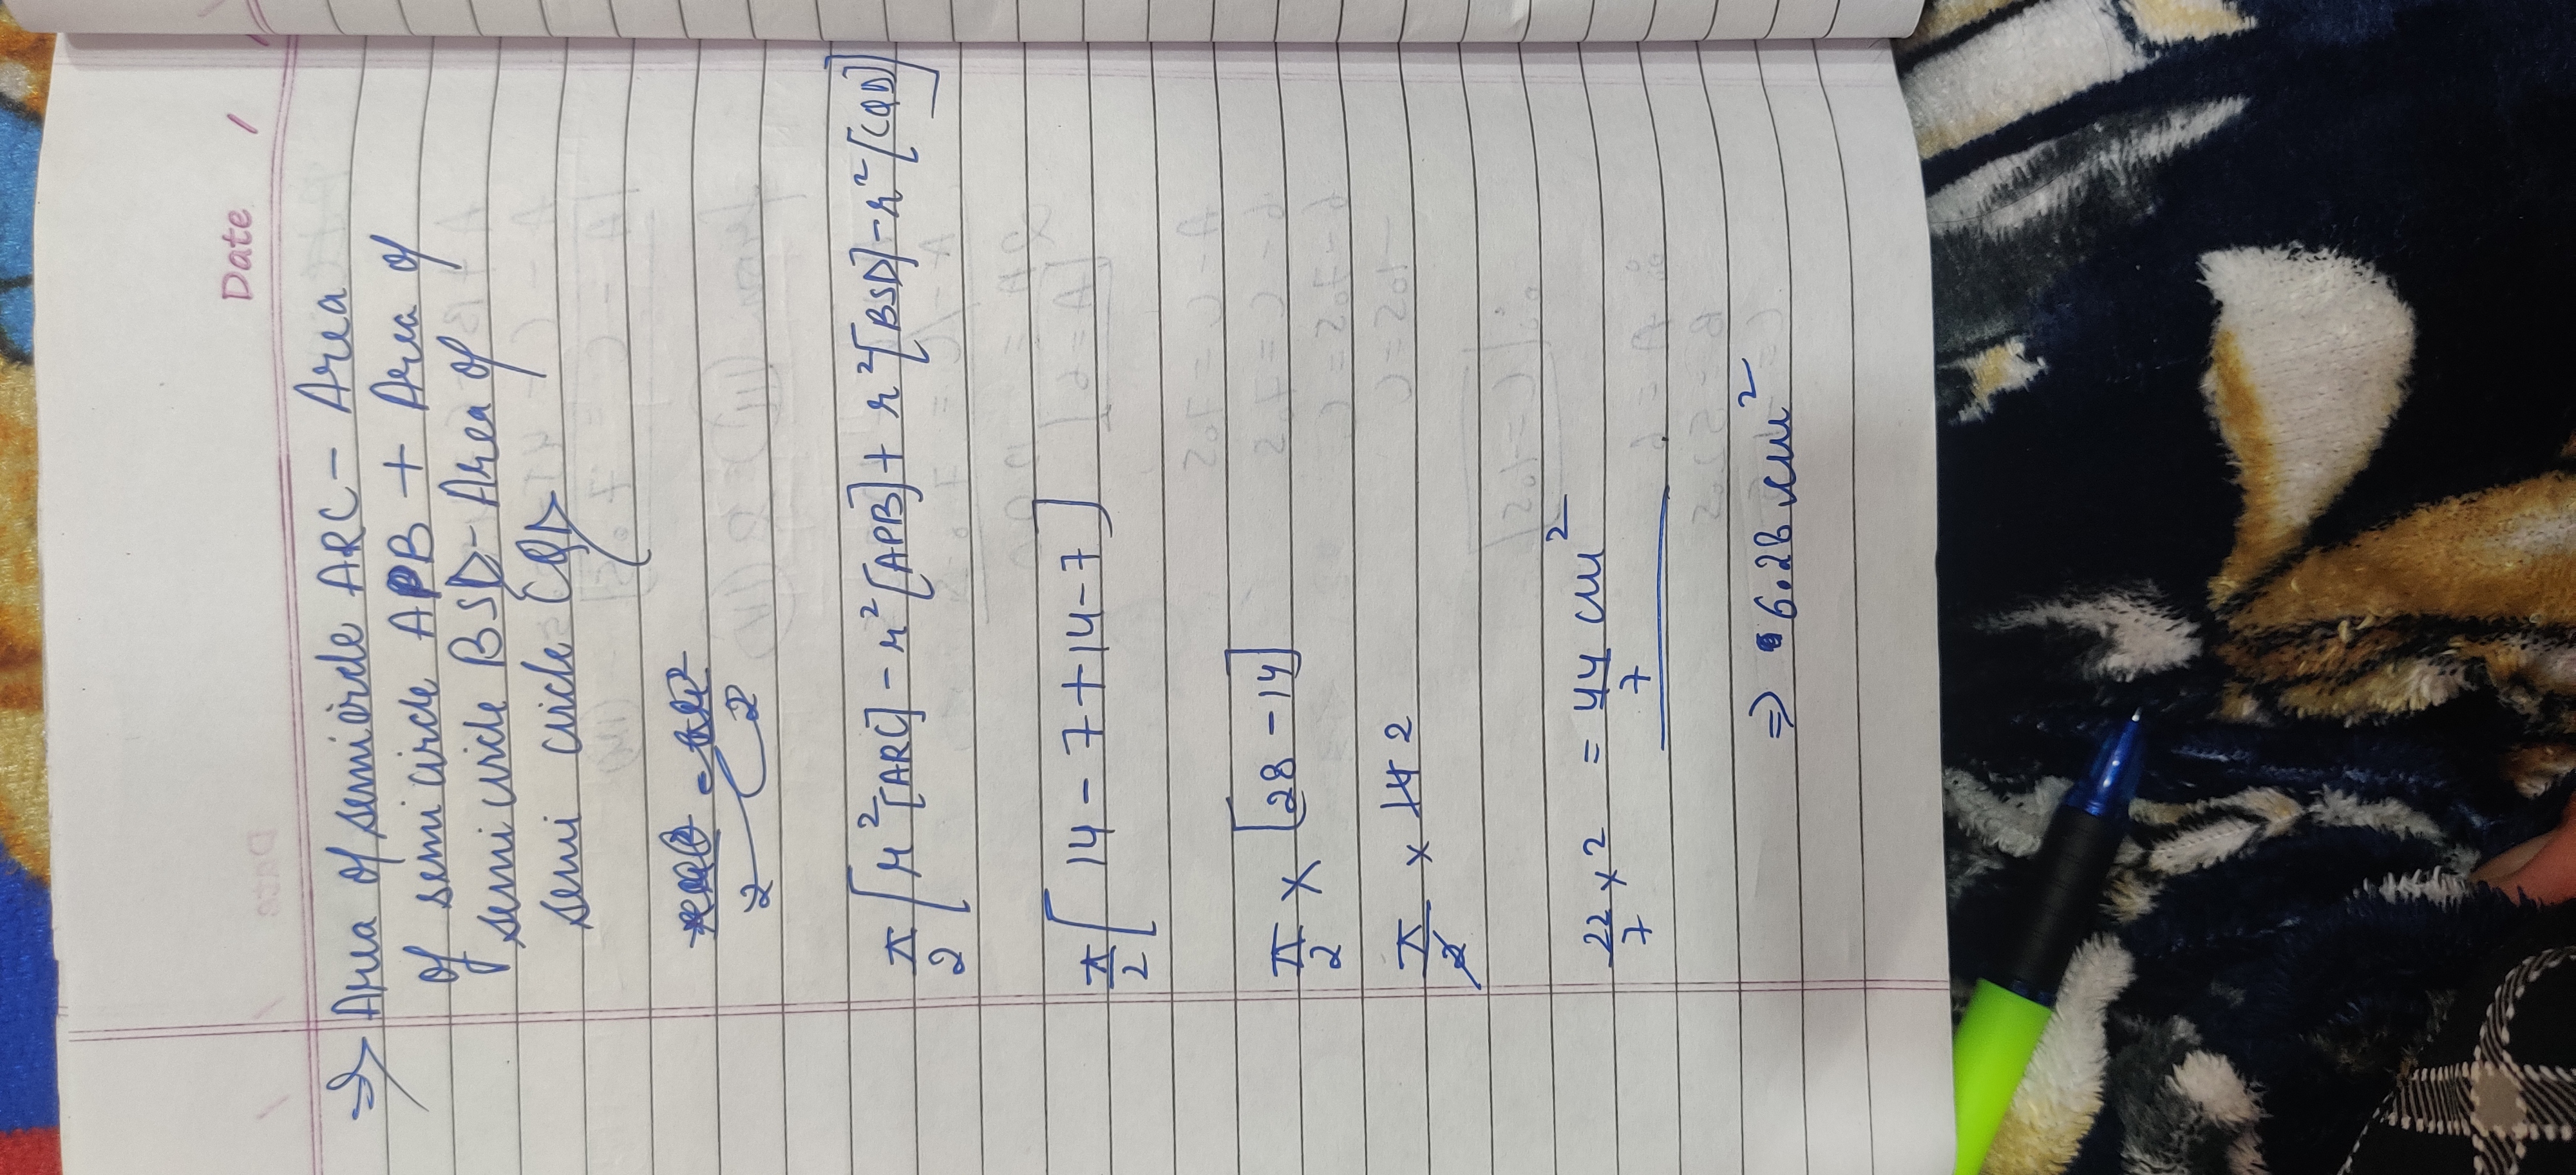 Date
⇒ Area of semicircle ARC - Area
of semi circle APB + Area of
semi circle BSD - Area of
semi circle CQD
2 2
π/2 [r²[ARC] - r²[APB] + r²[BSD] - r²[CQD]]
π/2 [14 - 7 + 14 - 7]
π/2 × [28 - 14]
π/2 × 14 2
22/7 × 2 = 44/7 cm²
⇒ 6.28 cm²